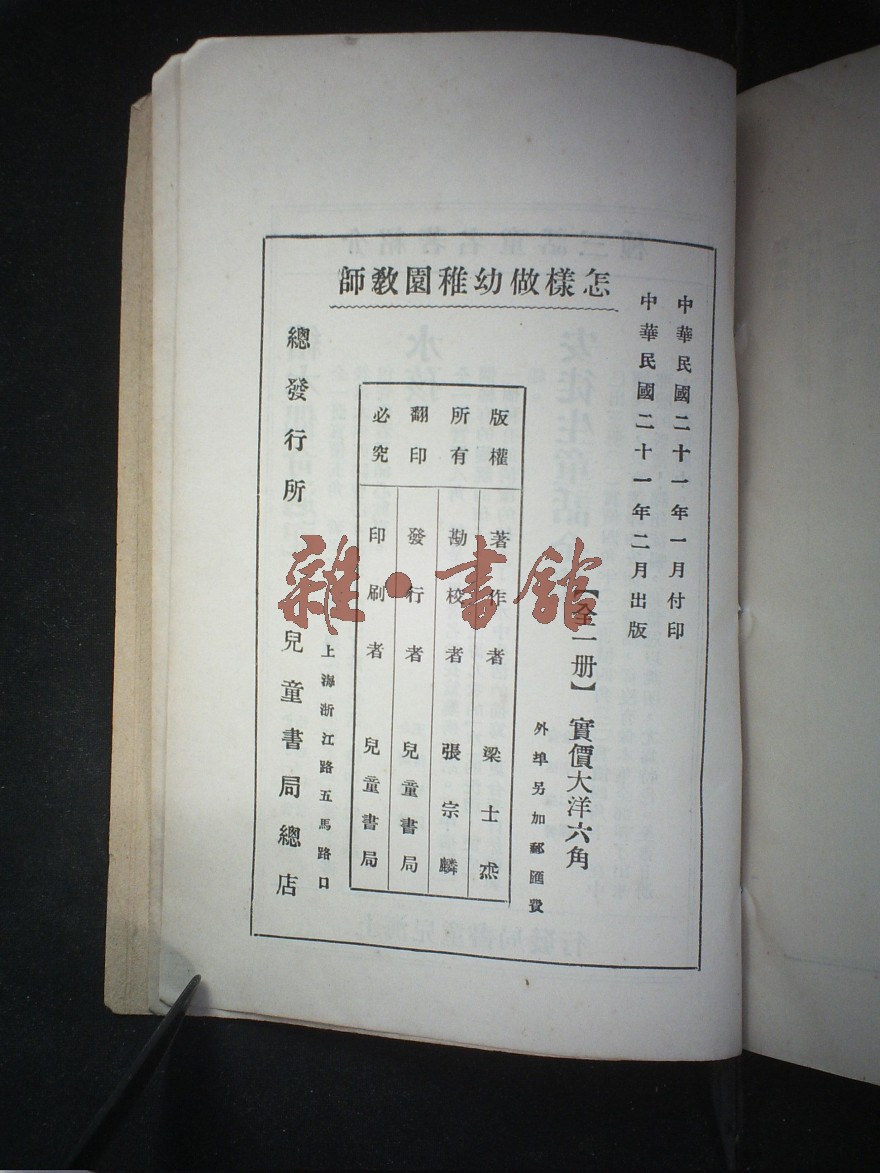 中華民國二十一年一月付印
中華民國二十一年二月出版
怎樣做幼稚園教師
【全一册】實價大洋六角
外埠另加郵匯費
版權所有翻印必究
著作者 梁士杰
勘校者 張宗麟
發行者 兒童書局
印刷者 兒童書局
上海浙江路五馬路口
總發行所 兒童書局總店
雜·書館